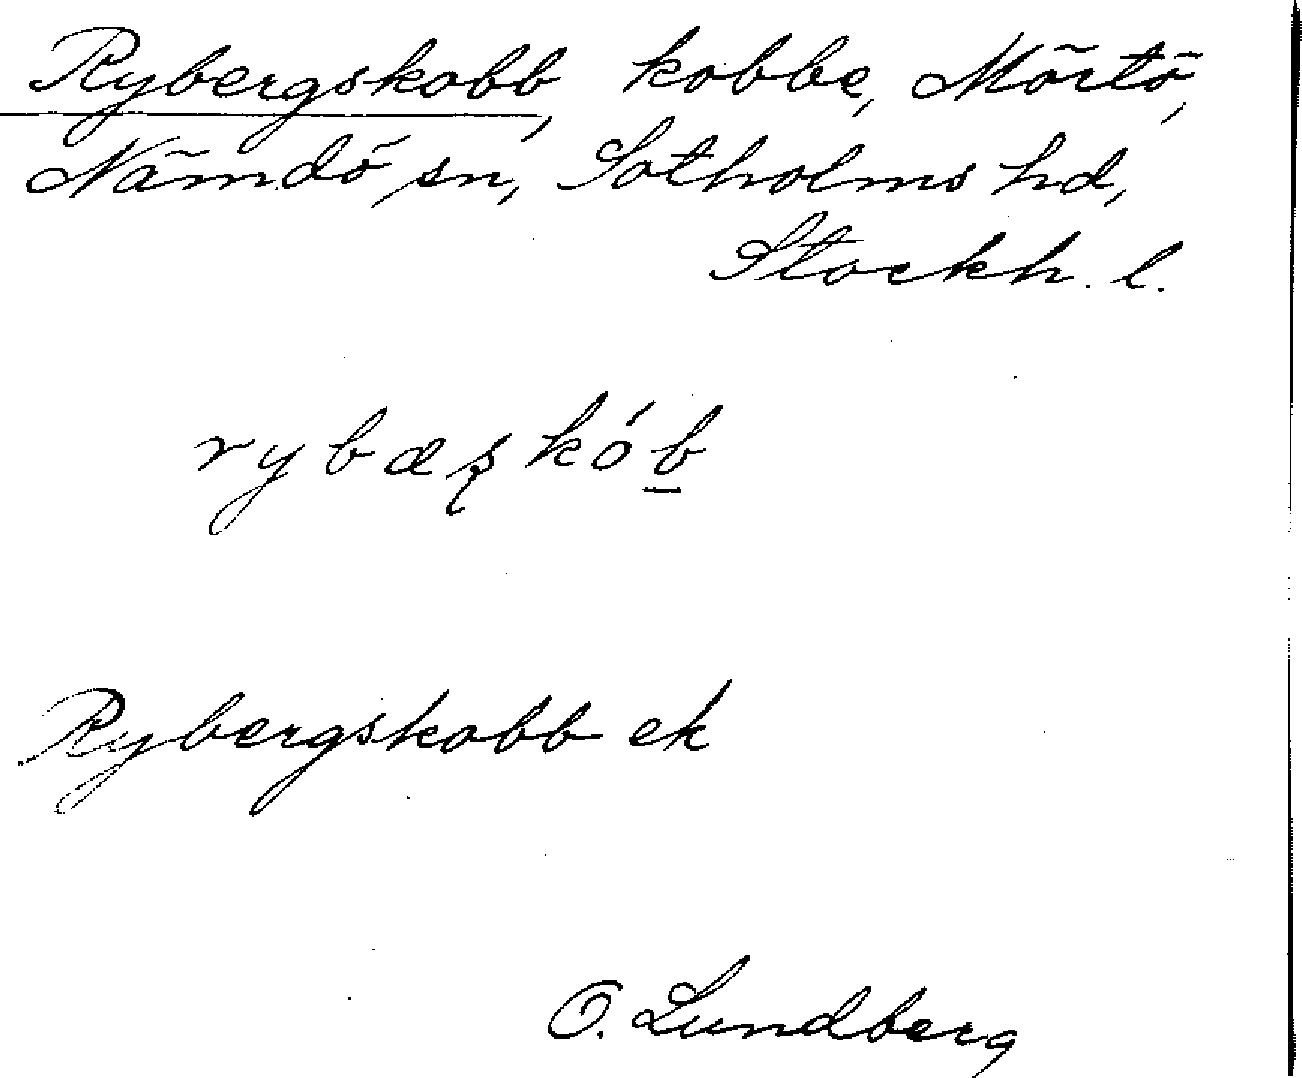 Rybergskobb, kobbe, Mörtö,
Nämdö sn, Sotholms hd,
Stockh. l.
rybæʂkób̲
Rybergskobb ek
O. Lundberg